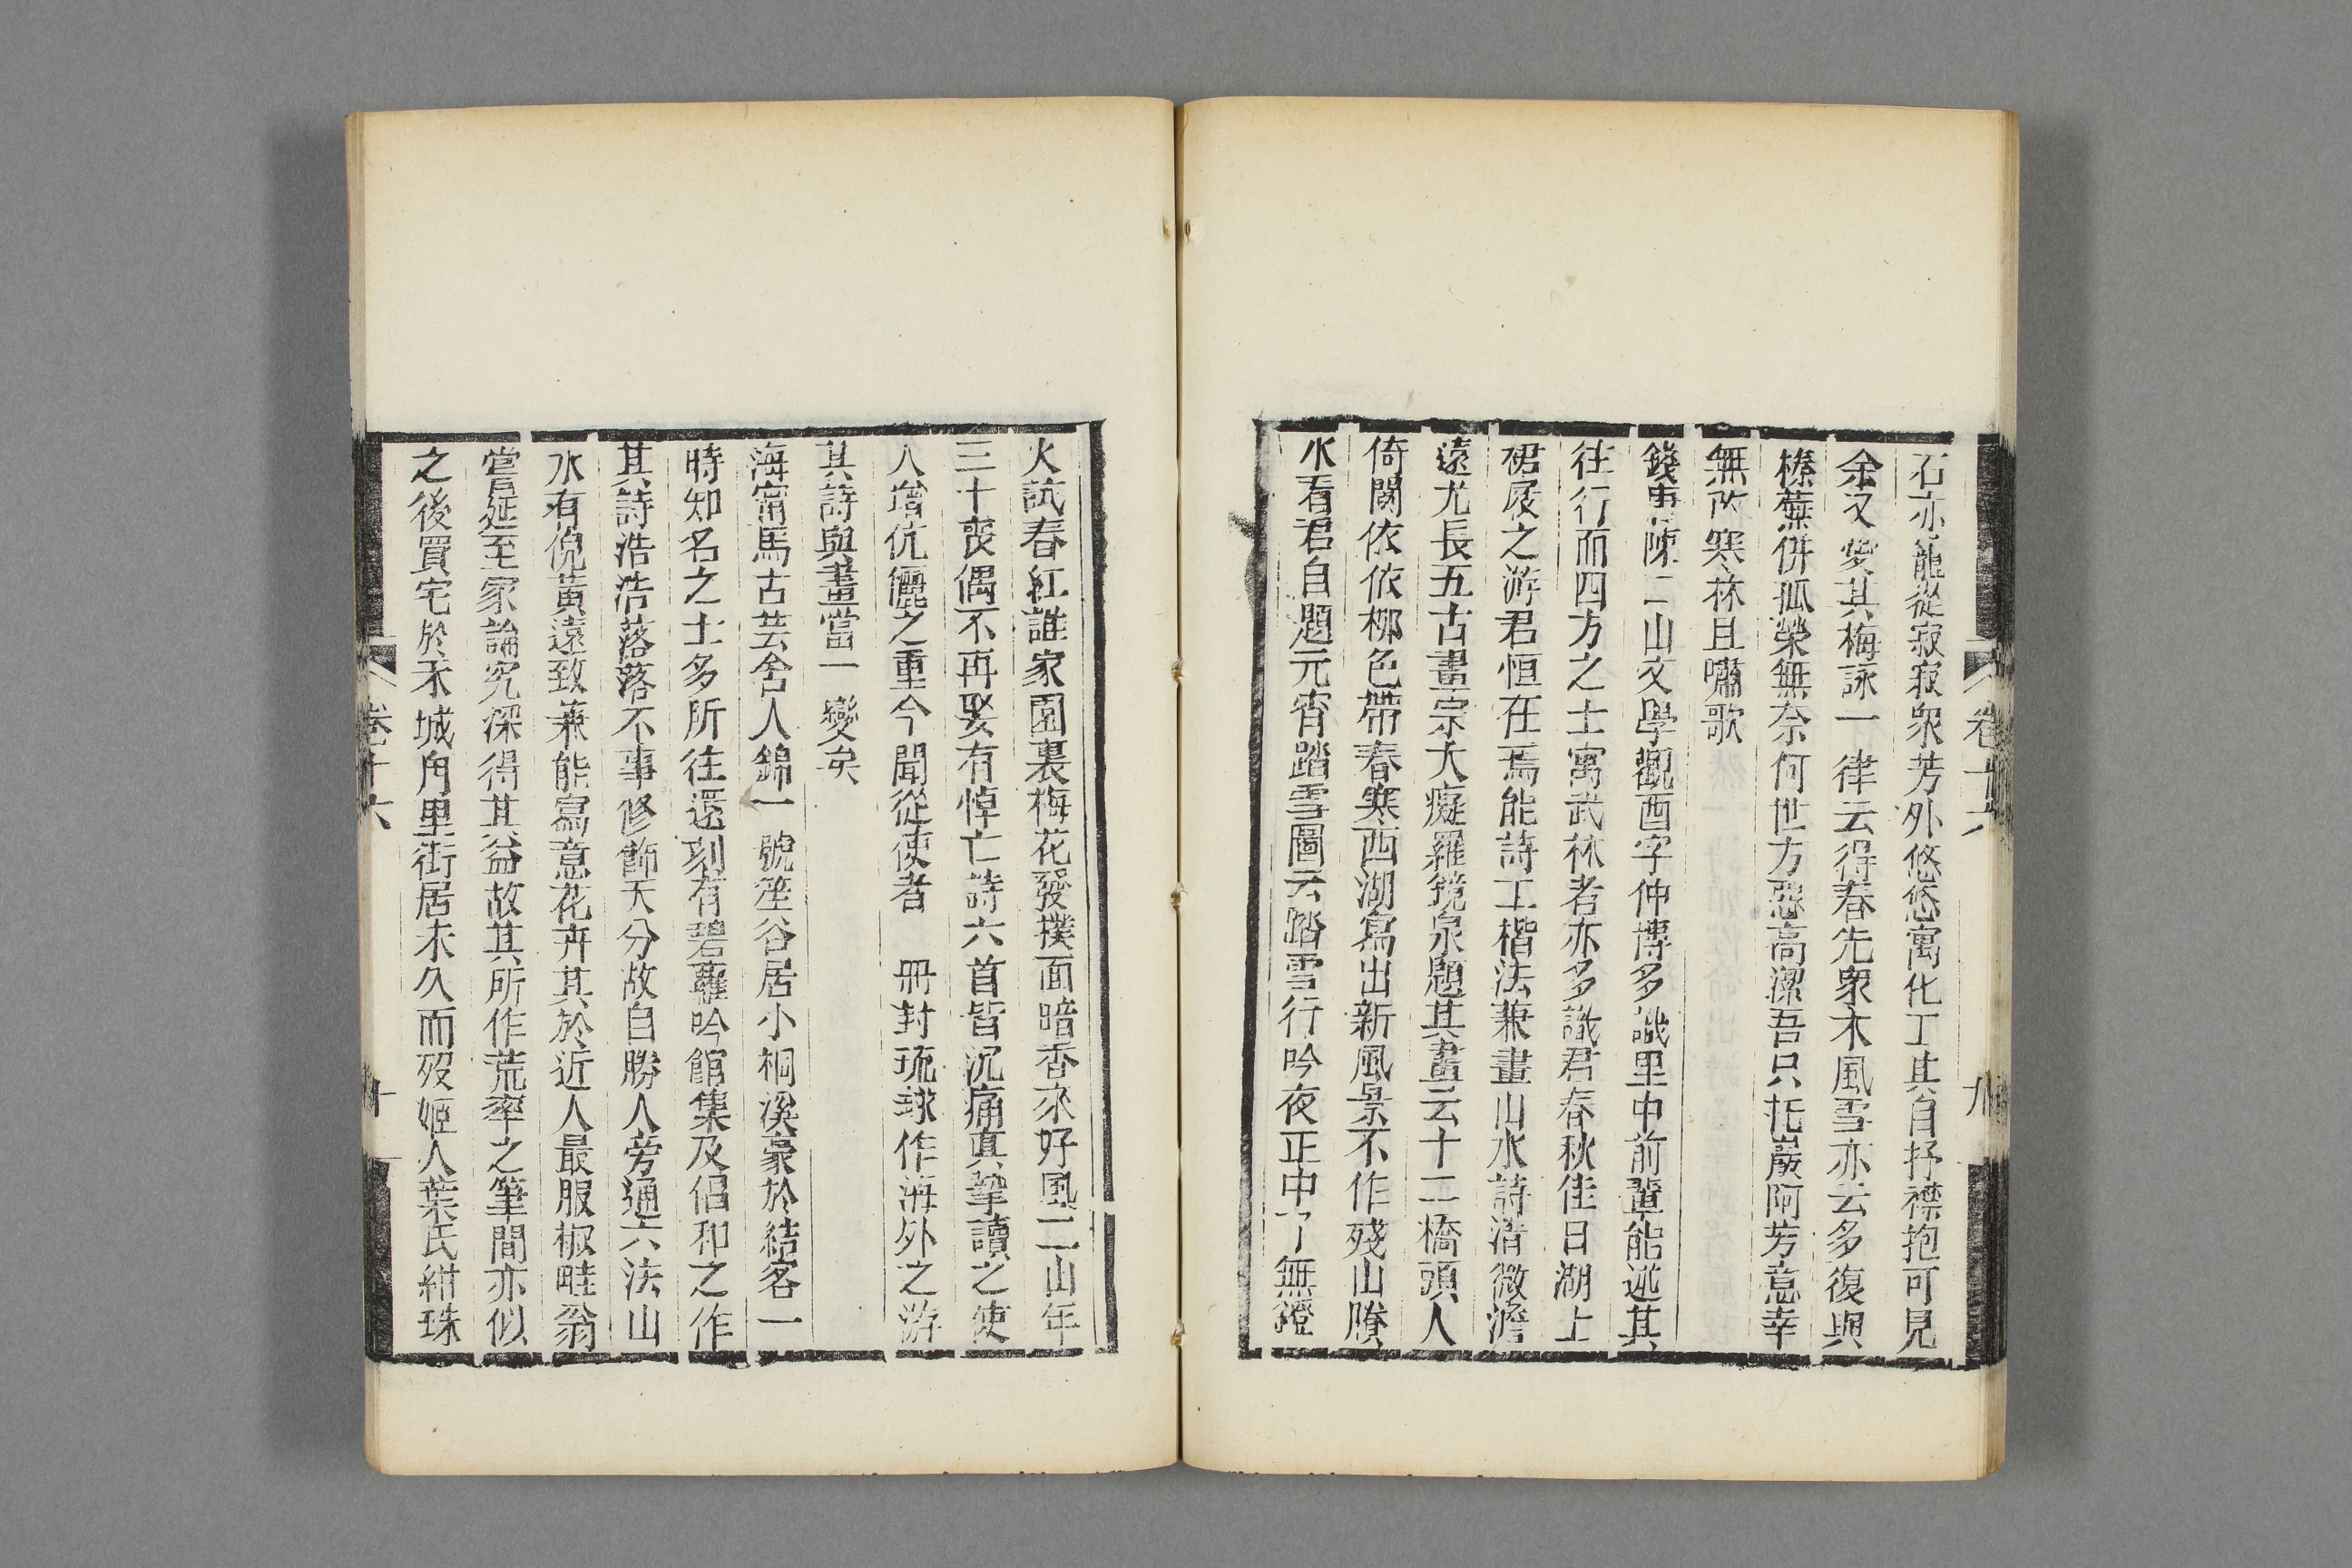 石亦蘢從寂寂衆芳外悠悠寓化工其自抒襟抱可見
余又愛其梅詠一律云得春先衆木風雪亦云多復與
榛蕪併孤榮無奈何世方惡高潔吾只托巖阿芳意幸
無改寒林且嘯歌
錢唐陳二山文學觀酉字仲博多識里中前輩能述其
往行而四方之士寓武林者亦多識君春秋佳日湖上
裙屐之游君恒在焉能詩工楷法兼畫山水詩清微澹
遠尤長五古畫宗大癡羅鏡泉題其畫云十二橋頭人
倚闌依依柳色帶春寒西湖寫出新風景不作殘山賸
水看君自題元宵踏雪圖云踏雪行吟夜正中了無燈
卷十六
九
火試春紅誰家園裏梅花發撲面暗香來好風二山年
三十喪偶不再娶有悼亡詩六首皆沉痛真摯讀之使
人增伉儷之重今聞從使者 冊封琉球作海外之游
其詩與畫當一變矣
海甯馬古芸舍人錦一號笙谷居小桐溪豪於結客一
時知名之士多所往還刻有碧蘿吟館集及倡和之作
其詩浩浩落落不事修飾天分故自勝人旁通六法山
水有倪黃遠致兼能寫意花卉其於近人最服椒畦翁
嘗延至家論究深得其益故其所作荒率之筆間亦似
之後買宅於禾城角里街居未久而歿姬人葉氏紺珠
卷十六
十